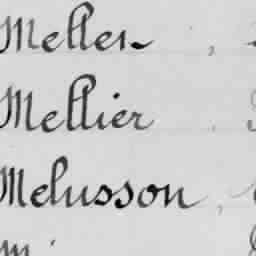 Meller ,
Mellier
Melusson ,